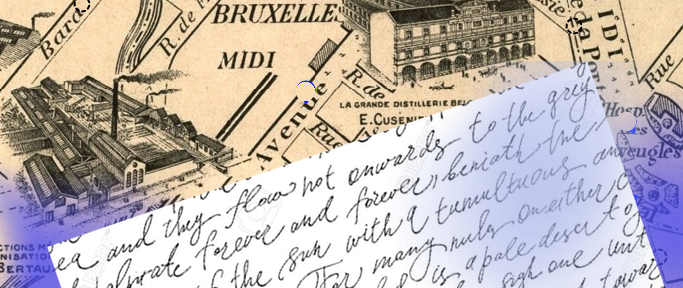 Bara
R. de
BRUXELLES
MIDI
Avenue
R. de
Rue
LA GRANDE DISTILLERIE BEL
E. CUSENI
IDI
Rue
Hosp.
veugles
CTIONS M
NISATION
BERTAU
to the grey
and they flow not onwards
beneath the
palpitate forever and forever
the sun with a tumultuous and
For many miles on either
is a pale desert of
sigh one unt
towar